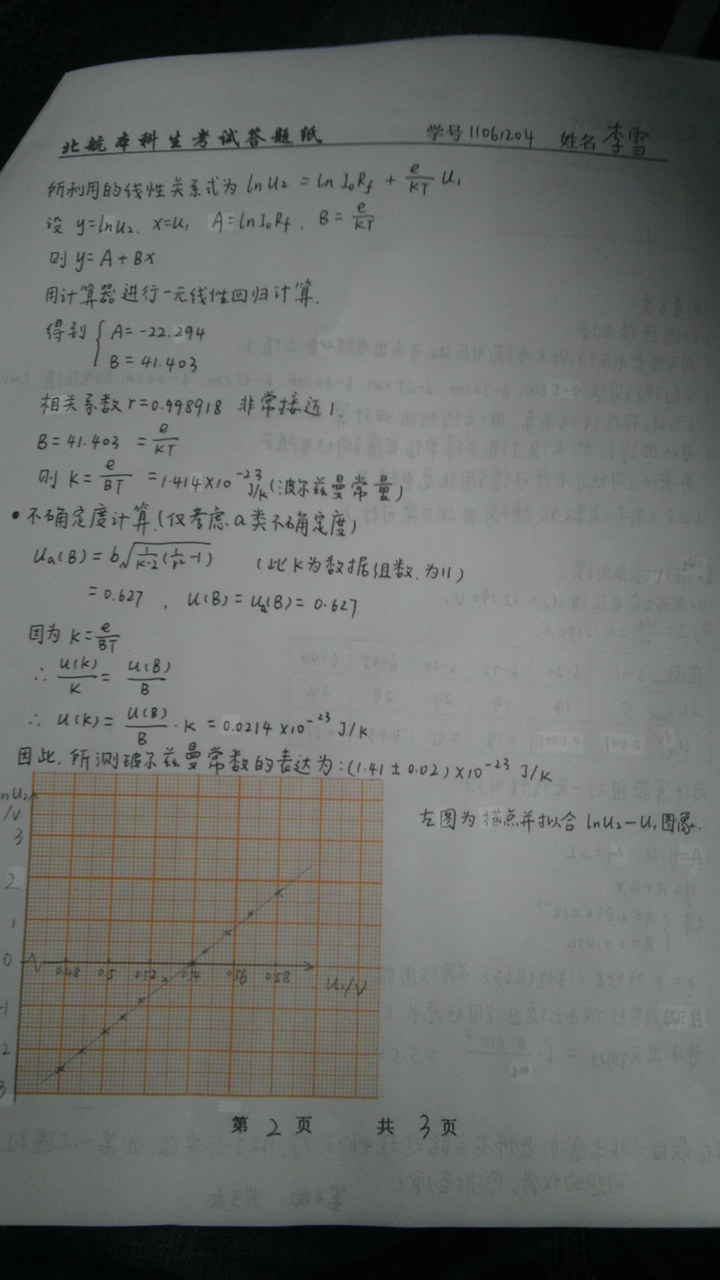 北航本科生考试答题纸 学号 11061204 姓名 李雪
所利用的线性关系式为 lnU₂ = ln I₀Rf + e/KT U₁
设 y=lnU₂, x=U₁ A=lnI₀Rf, B= e/KT
则 y=A+Bx
用计算器进行一元线性回归计算.
得到 { A=-22.294
B=41.403
相关系数 r=0.998918 非常接近1.
B=41.403 = e/KT
则 K= e/BT =1.414×10⁻²³ J/K (波尔兹曼常量)
• 不确定度计算.(仅考虑.a类不确定度)
Ua(B) = b√(1/(K-2)(1/r²-1)) (此K为数据组数.为11)
=0.627 , U(B)=Ua(B)=0.627
因为 K= e/BT
∴ U(K)/K = U(B)/B
∴ U(K) = U(B)/B · K = 0.0214×10⁻²³ J/K
因此.所测玻尔兹曼常数的表达为:(1.41±0.02)×10⁻²³ J/K
左图为描点并拟合 lnU₂-U₁图象.
lnU₂
/V
3
2
1
0 0.48 0.5 0.52 0.54 0.56 0.58 U₁/V
-1
-2
-3
第 2 页 共 3 页